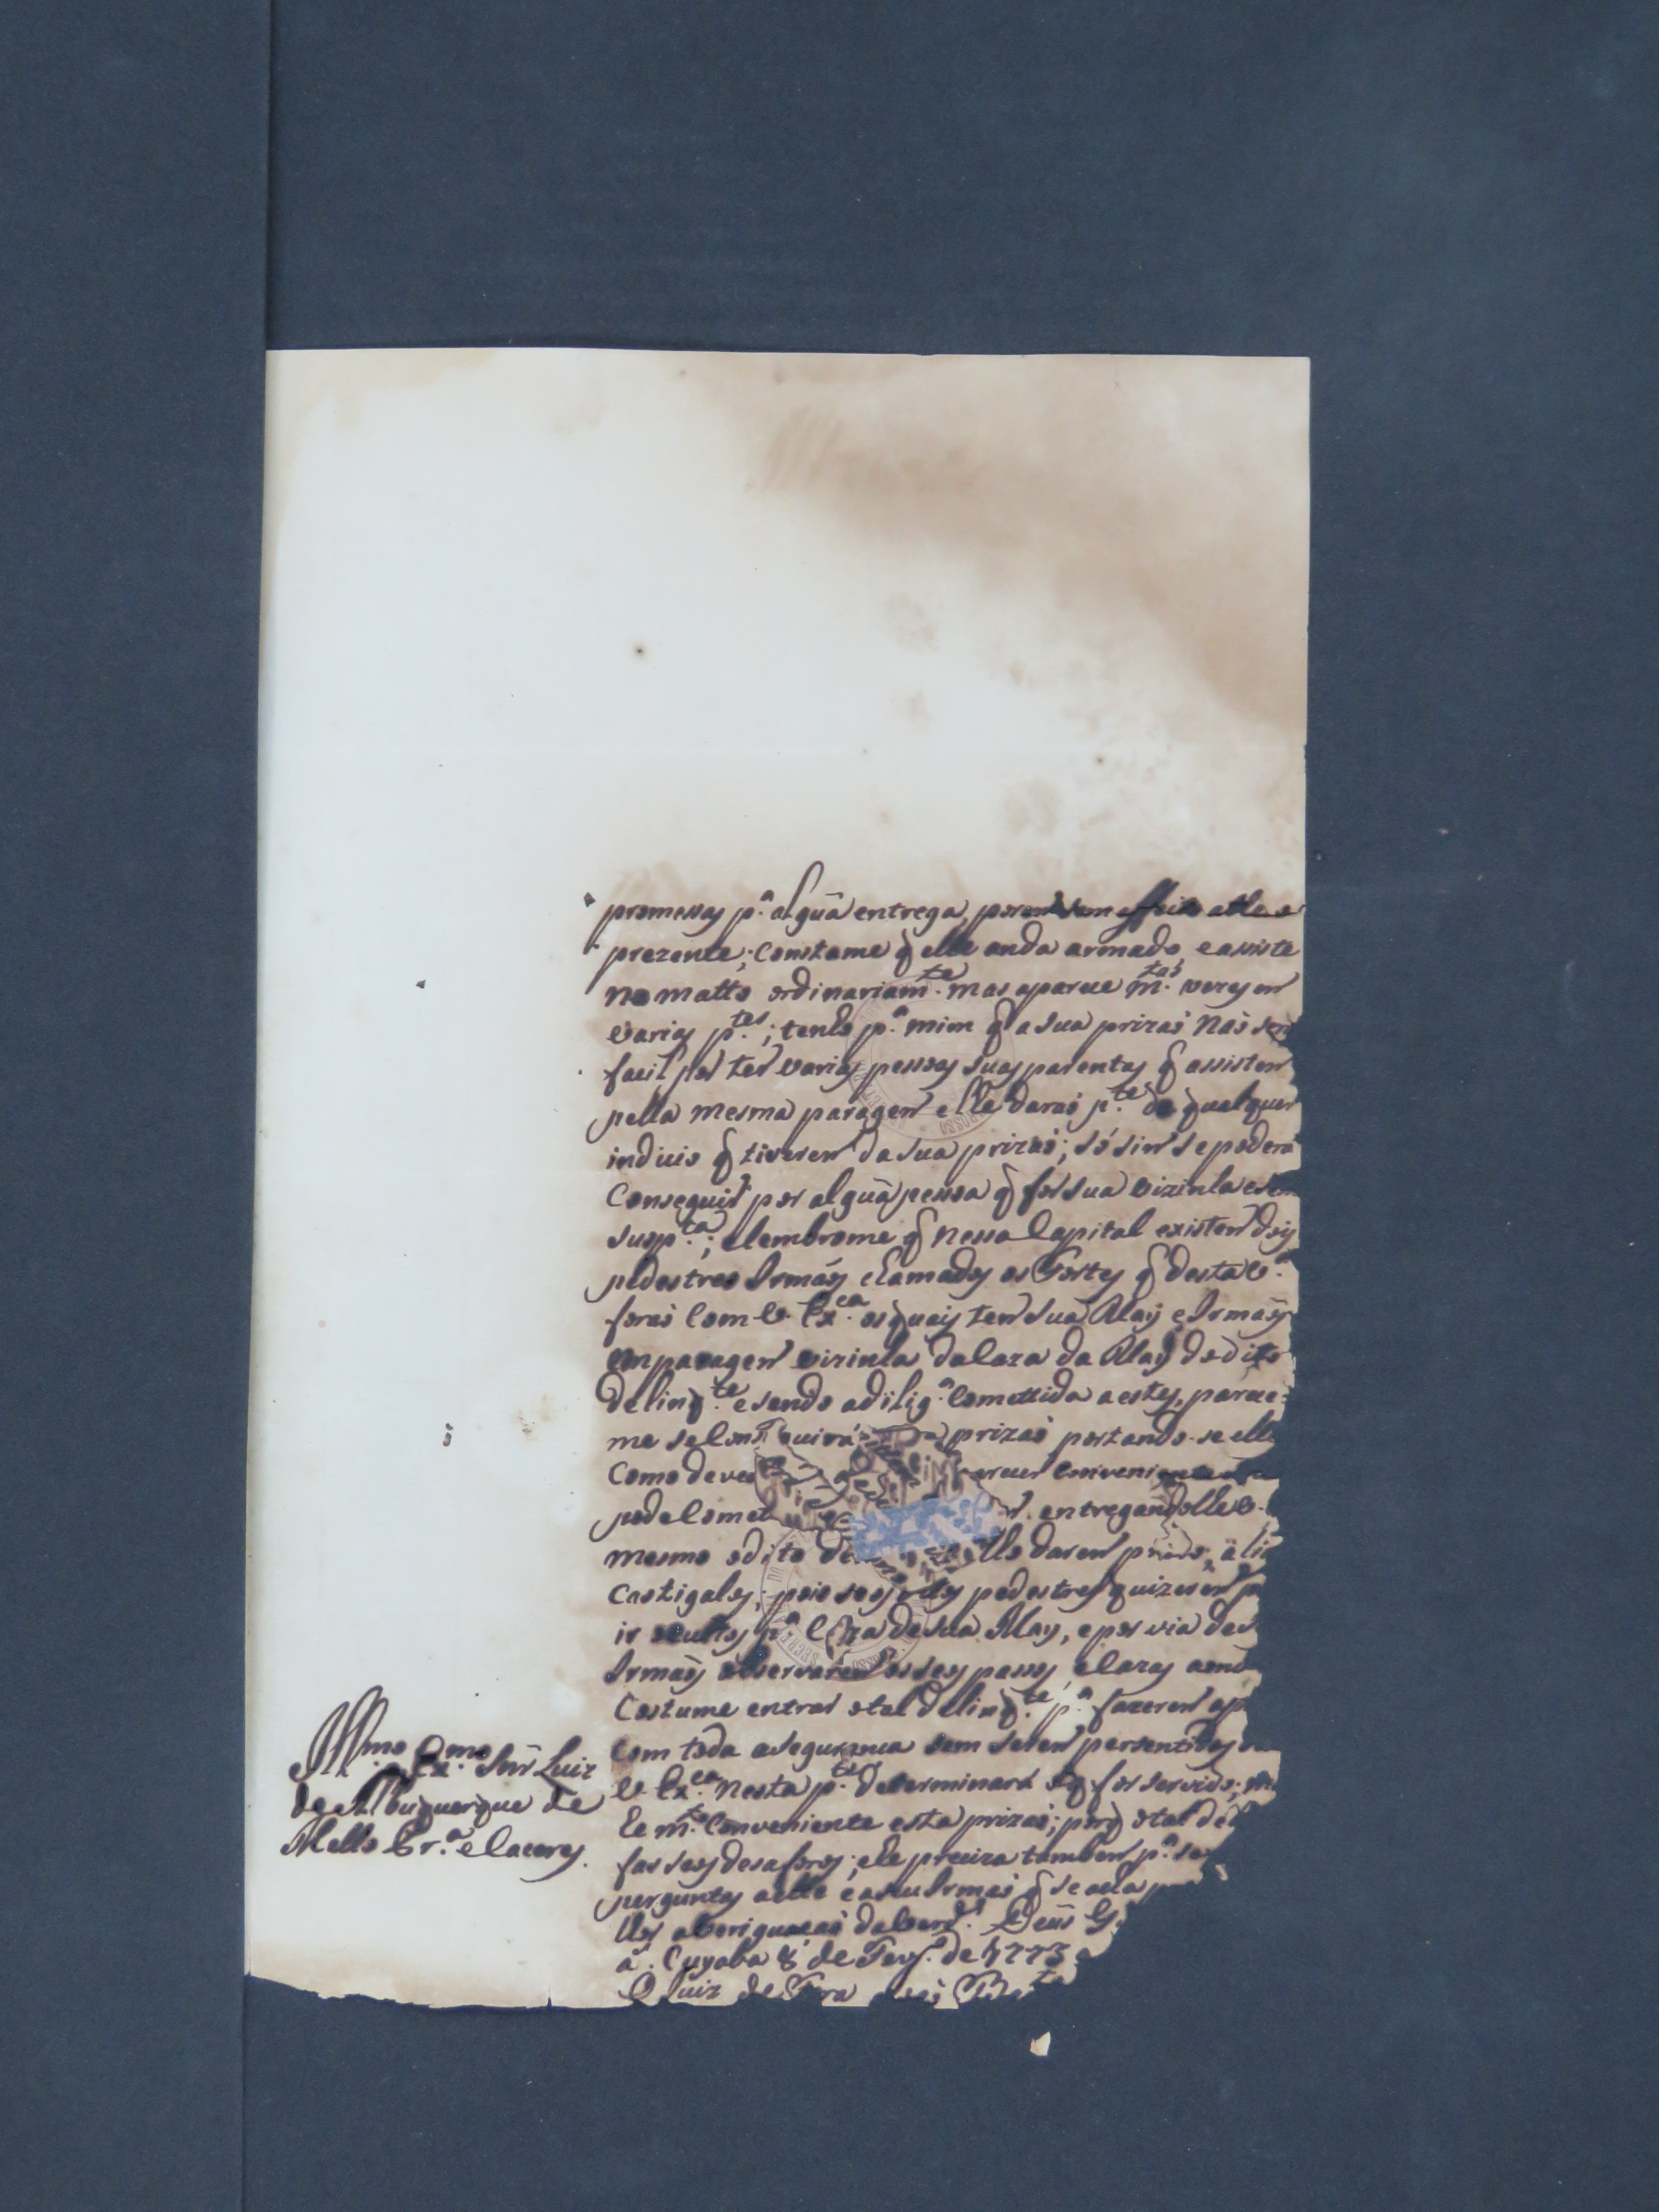 promessas p.ª algũa entrega, porem sem effeito athe o
prezente; Constame q̃ elle anda armado, e assiste
no matto ordinariam.te mas aparece m.tas vezes em
varias p.tes; tenho p.ª mim q̃ a sua prizaõ naõ será
facil por ter varias pessoas suas parentas q̃ assistem
pella mesma paragem e lhe daraõ p.te de qualquer
indicio q̃ tiverem da sua prizaõ; só sim se poderá
Conseguir por algũa pessoa q̃ for sua vizinha e sem
susp.ta; e lembrome q̃ nessa Capital existem dois
pedestres Irmaõs chamados os Fortes q̃ desta V.ª
foraõ Com V. Ex.ca os quais tem sua May e Irmaãs
em paragem vizinha da Caza da May do dito
delinq.te e sendo a dilig.ª Comettida a estes, parece=
me se Cons guirá prizaõ portando-se elles
Como deve arecer Conveniente
pode Comet entregandolhe V.
mesmo o dito de lho darem prezo, a li
Castigalos; pois se os ditos pedestres quizerem
ir occultos p.ª Caza de sua May, e por via de s
Irmaãs observarem os seos passos, e Cazas aond
Costume entrar o tal delinq.te p.ª fazerem
Com toda a segurança sem serem persentidos
V. Ex.ca nesta p.te determinará o q̃ for servido;
he m.to Conveniente esta prizaõ; porq̃ o tal del
fas seos desaforos; e he preciza tambem p.ª se
perguntas a elle e a seu Irmaõ q̃ se acha
lhor averiguaçaõ da verd.e. Deus G.
a. Cuyaba 8 de Fevr.º de 1773
O Juiz de Fora
Ill.mo e Ex.mo Snr Luiz
de Albuquerque de
Mello Pr.ª e Caceres.